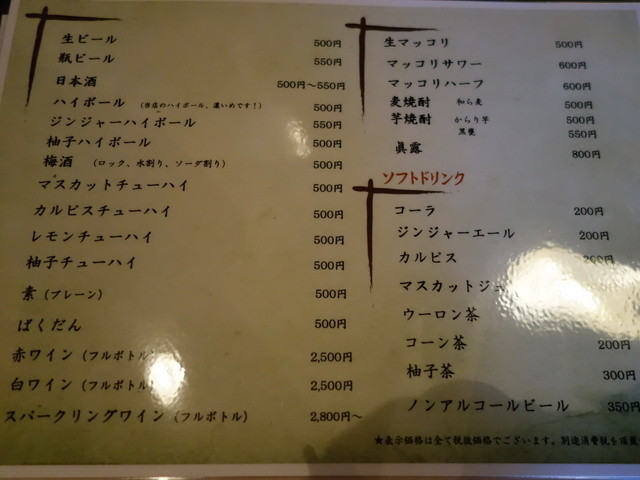 生ビール 500円
瓶ビール 550円
日本酒 500円〜550円
ハイボール (当店のハイボール、濃いめです!) 500円
ジンジャーハイボール 550円
柚子ハイボール 500円
梅酒 (ロック、水割り、ソーダ割り) 500円
マスカットチューハイ 500円
カルピスチューハイ 500円
レモンチューハイ 500円
柚子チューハイ 500円
素 (プレーン) 500円
ばくだん 500円
赤ワイン (フルボトル) 2,500円
白ワイン (フルボトル) 2,500円
スパークリングワイン (フルボトル) 2,800円〜
生マッコリ 500円
マッコリサワー 600円
マッコリハーフ 600円
麦焼酎 和ら麦 500円
芋焼酎 からり芋 500円
黒甕 550円
眞露 800円
ソフトドリンク
コーラ 200円
ジンジャーエール 200円
カルピス 200円
マスカットジュ
ウーロン茶
コーン茶 200円
柚子茶 300円
ノンアルコールビール 350円
★表示価格は全て税抜価格でございます。別途消費税を頂戴